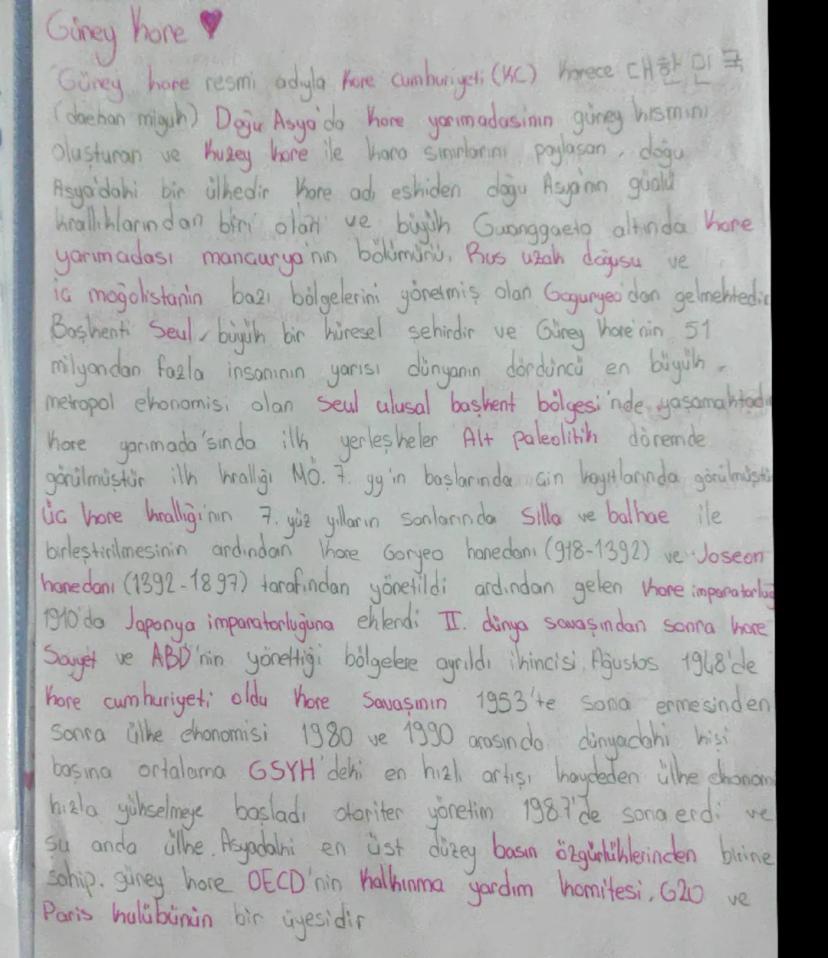 Güney kore ♥
Güney kore resmi adıyla kore cumhuriyeti (KC) korece 대한민국
(daehan miguk) Doğu Asya'da kore yarımadasinin güney kısmını
oluşturan ve kuzey kore ile kara sınırlarını paylaşan, doğu
Asya'daki bir ülkedir kore adı eskiden doğu Asya'nın güçlü
krallıklarından biri olan ve büyük Gwanggaeto altında kore
yarımadası mançurya'nın bölümünü, Rus uzak doğusu ve
iç moğolistanin bazı bölgelerini yönetmiş olan Goguryeo'dan gelmektedir
Başkenti Seul, büyük bir küresel şehirdir ve Güney kore'nin 51
milyondan fazla insanının yarısı dünyanın dördüncü en büyük
metropol ekonomisi olan Seul ulusal başkent bölgesi'nde yaşamaktadı
kore yarımada'sında ilk yerleşkeler Alt paleolitik dönemde
görülmüştür ilk krallığı MÖ. 7. yy'ın başlarında çin kayıtlarında görülmüştü
üç kore krallığı'nın 7. yüz yılların sonlarında Silla ve balhae ile
birleştirilmesinin ardından kore Goryeo hanedanı (918-1392) ve Joseon
hanedanı (1392-1897) tarafından yönetildi ardından gelen kore imparatorluğ
1910'da Japonya imparatorluğuna eklendi II. dünya savaşından sonra kore
Sovyet ve ABD'nin yönettiği bölgelere ayrıldı ikincisi, Ağustos 1948'de
kore cumhuriyeti oldu kore Savaşının 1953'te sona ermesinden
sonra ülke ekonomisi 1980 ve 1990 arasında dünyadaki kişi
başına ortalama GSYH'deki en hızlı artışı kaydeden ülke ekonom
hızla yükselmeye başladı otoriter yönetim 1987'de sona erdi ve
şu anda ülke, Asyadaki en üst düzey basın özgürlüklerinden birine
sahip. güney kore OECD'nin kalkınma yardım komitesi, G20 ve
Paris kulübünün bir üyesidir